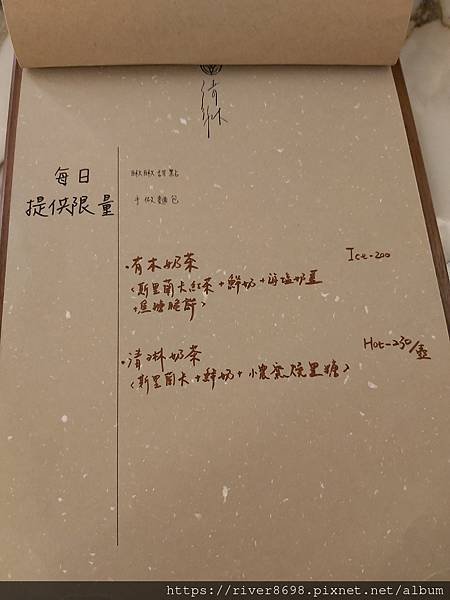 清淋
每日
提供限量
啾啾甜點
手做麵包
·有木奶茶 Ice-200
(斯里蘭卡紅茶+鮮奶+海塩奶蓋
+焦糖脆餅)
·清淋奶茶 Hot-230/壺
(斯里蘭卡+鮮奶+小農蔗 里糖)
https://river8698.pixnet.net/album